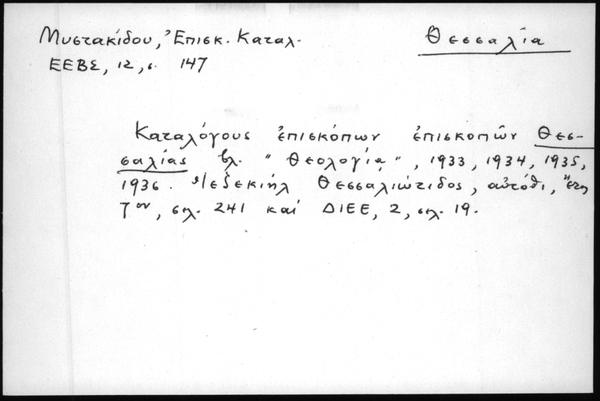 Μυστακίδου, Ἐπισκ. Καταλ.
Θεσσαλία
ΕΕΒΣ, 12, σ. 147
Καταλόγους ἐπισκόπων ἐπισκοπῶν Θεσ-
σαλίας βλ. "Θεολογία", 1933, 1934, 1935,
1936. Ἰεζεκιὴλ Θεσσαλιώτιδος, αὐτόθι, ἔτος
7ον, σελ. 241 καὶ ΔΙΕΕ, 2, σελ. 19.